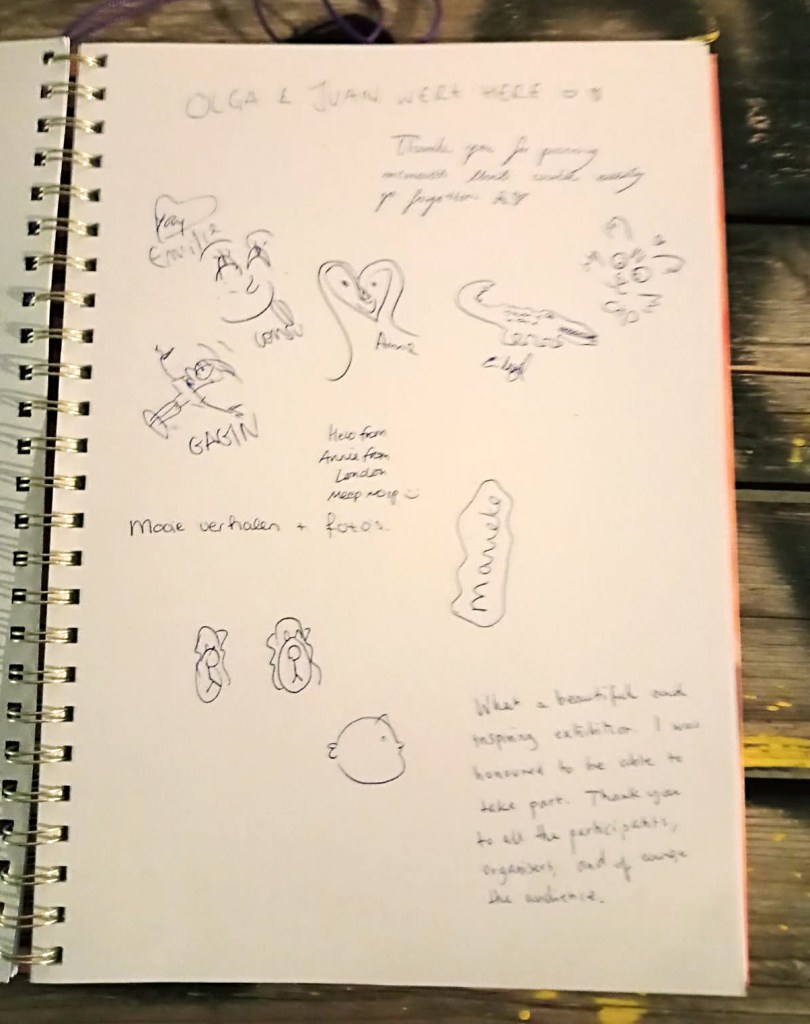 OLGA & JUAN WERE HERE
Thank you for
moments that could easily
go forgotten
Yay
Emilie
Annie
GAGIN
Hello from
Annie from
London
Meep Morp
Mooie verhalen + foto's.
What a beautiful and
inspiring exhibition. I was
honoured to be able to
take part. Thank you
to all the participants,
organisers, and of course
the audience.